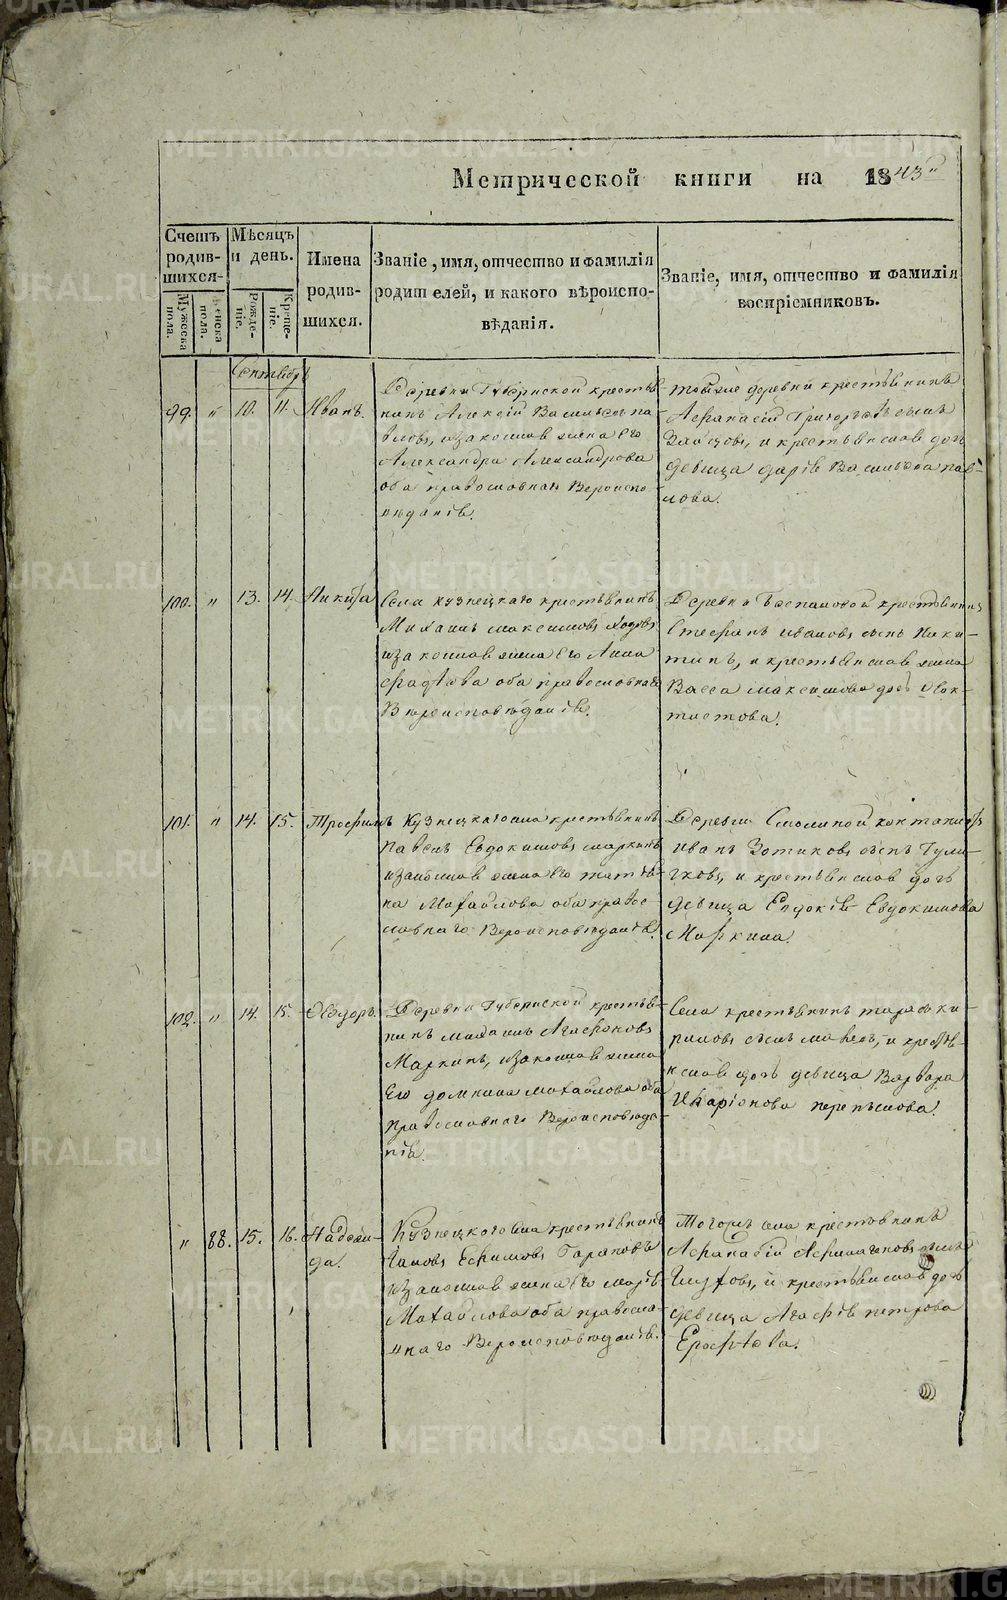 Метрической книги на 1843й
Счетъ родив-шихся.
Мѣсяцъ и день.
Имена родив-шихся.
Званіе, имя, отчество и фамилія
родителей, и какого вѣроиспо-
вѣданія.
Званіе, имя, отчество и фамилія
воспріемниковъ.
Мужеска пола.
Женска пола.
Рожде-ніе.
Креще-ніе.
Сентябрь
99. " 10. 11. Иванъ.
Деревни Губернской крестья-
нинъ Алексій Васильевъ па-
вловъ, и законная жена его
Александра Александрова
оба православнаго Вѣроиспо-
вѣданія.
тойже деревни крестьянинъ
Афанасій Григорьевъ сынъ
Зайцовъ, и крестьянская дочь
девица дарія Васильева пав-
лова.
100. " 13. 14. Никита
Села кузнецкаго крестьянинъ
Михаилъ максимовъ
и законная жена его Анна
фадѣева оба православнаго
Вѣроисповѣданія.
Деревни крестьянинъ
Стефанъ ивановъ сынъ Ники-
тинъ, и крестьянская жена
Васса максимова дочь Феок-
тистова.
101. " 14. 15. Трофимъ
Кузнецкаго села крестьянинъ
Павелъ Евдокимовъ маркинъ
и законная жена его татья-
на Михайлова оба право-
славнаго Вѣроисповѣданія.
Деревни Смолиной
иванъ Зотиковъ сынъ Гули-
чковъ, и крестьянская дочь
девица Евдокія Евдокимова
Маркина.
102. " 14. 15. Ѳеодоръ.
Деревни Губернской крестья-
нинъ михаилъ Агафоновъ
Маркинъ, и законная жена
его домнина михайлова оба
православнаго Вѣроисповѣда-
нія.
Села крестьянинъ тарасъ ки-
риловъ сынъ и крестья-
нская дочь девица Варвара
Иларіонова
" 88. 15. 16. Надежи-
да.
Кузнецкого села крестьянинъ
Ефимовъ
и законная жена его марія
Михайлова оба правосла-
внаго Вѣроисповѣданія.
Тогожъ села крестьянинъ
Афанасій сынъ
и крестьянская дочь
девица Агафія петрова
Ерофѣева.
METRIKI.GASO-URAL.RU